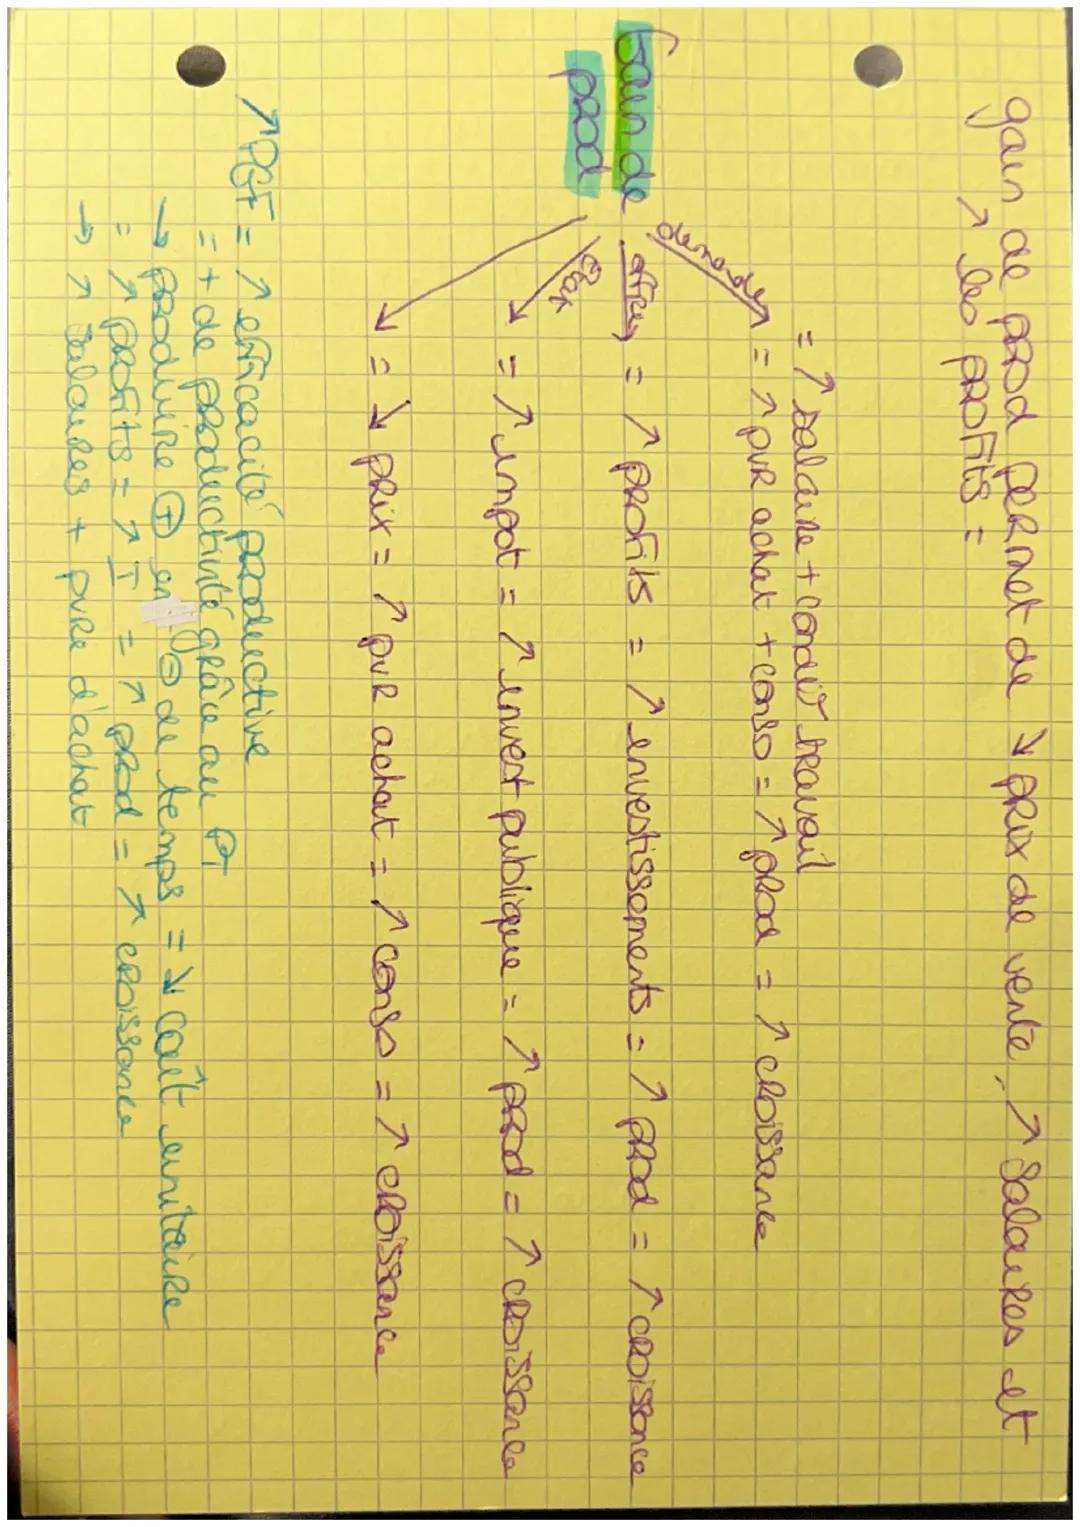 gain de prod permet de ↘ prix de vente, ↗ salaires et
↗ les profits =
= ↗ salaire + condit° travail
demande → = ↗ pvR achat + conso = ↗ prod = ↗ croissance
Gain de
prod
offre → = ↗ profits = ↗ investissements = ↗ prod = ↗ croissance
État → = ↗ impot = ↗ invest publique = ↗ prod = ↗ croissance
→ = ↘ prix = ↗ pvR achat = ↗ conso = ↗ croissance
↗ PGF = ↗ efficacité productive
= + de productivité grâce au PT
→ produire ⊕ en ⊖ de temps = ↘ coût unitaire
= ↗ profits = ↗ I = ↗ prod = ↗ croissance
→ ↗ salaires + pvRe d'achat